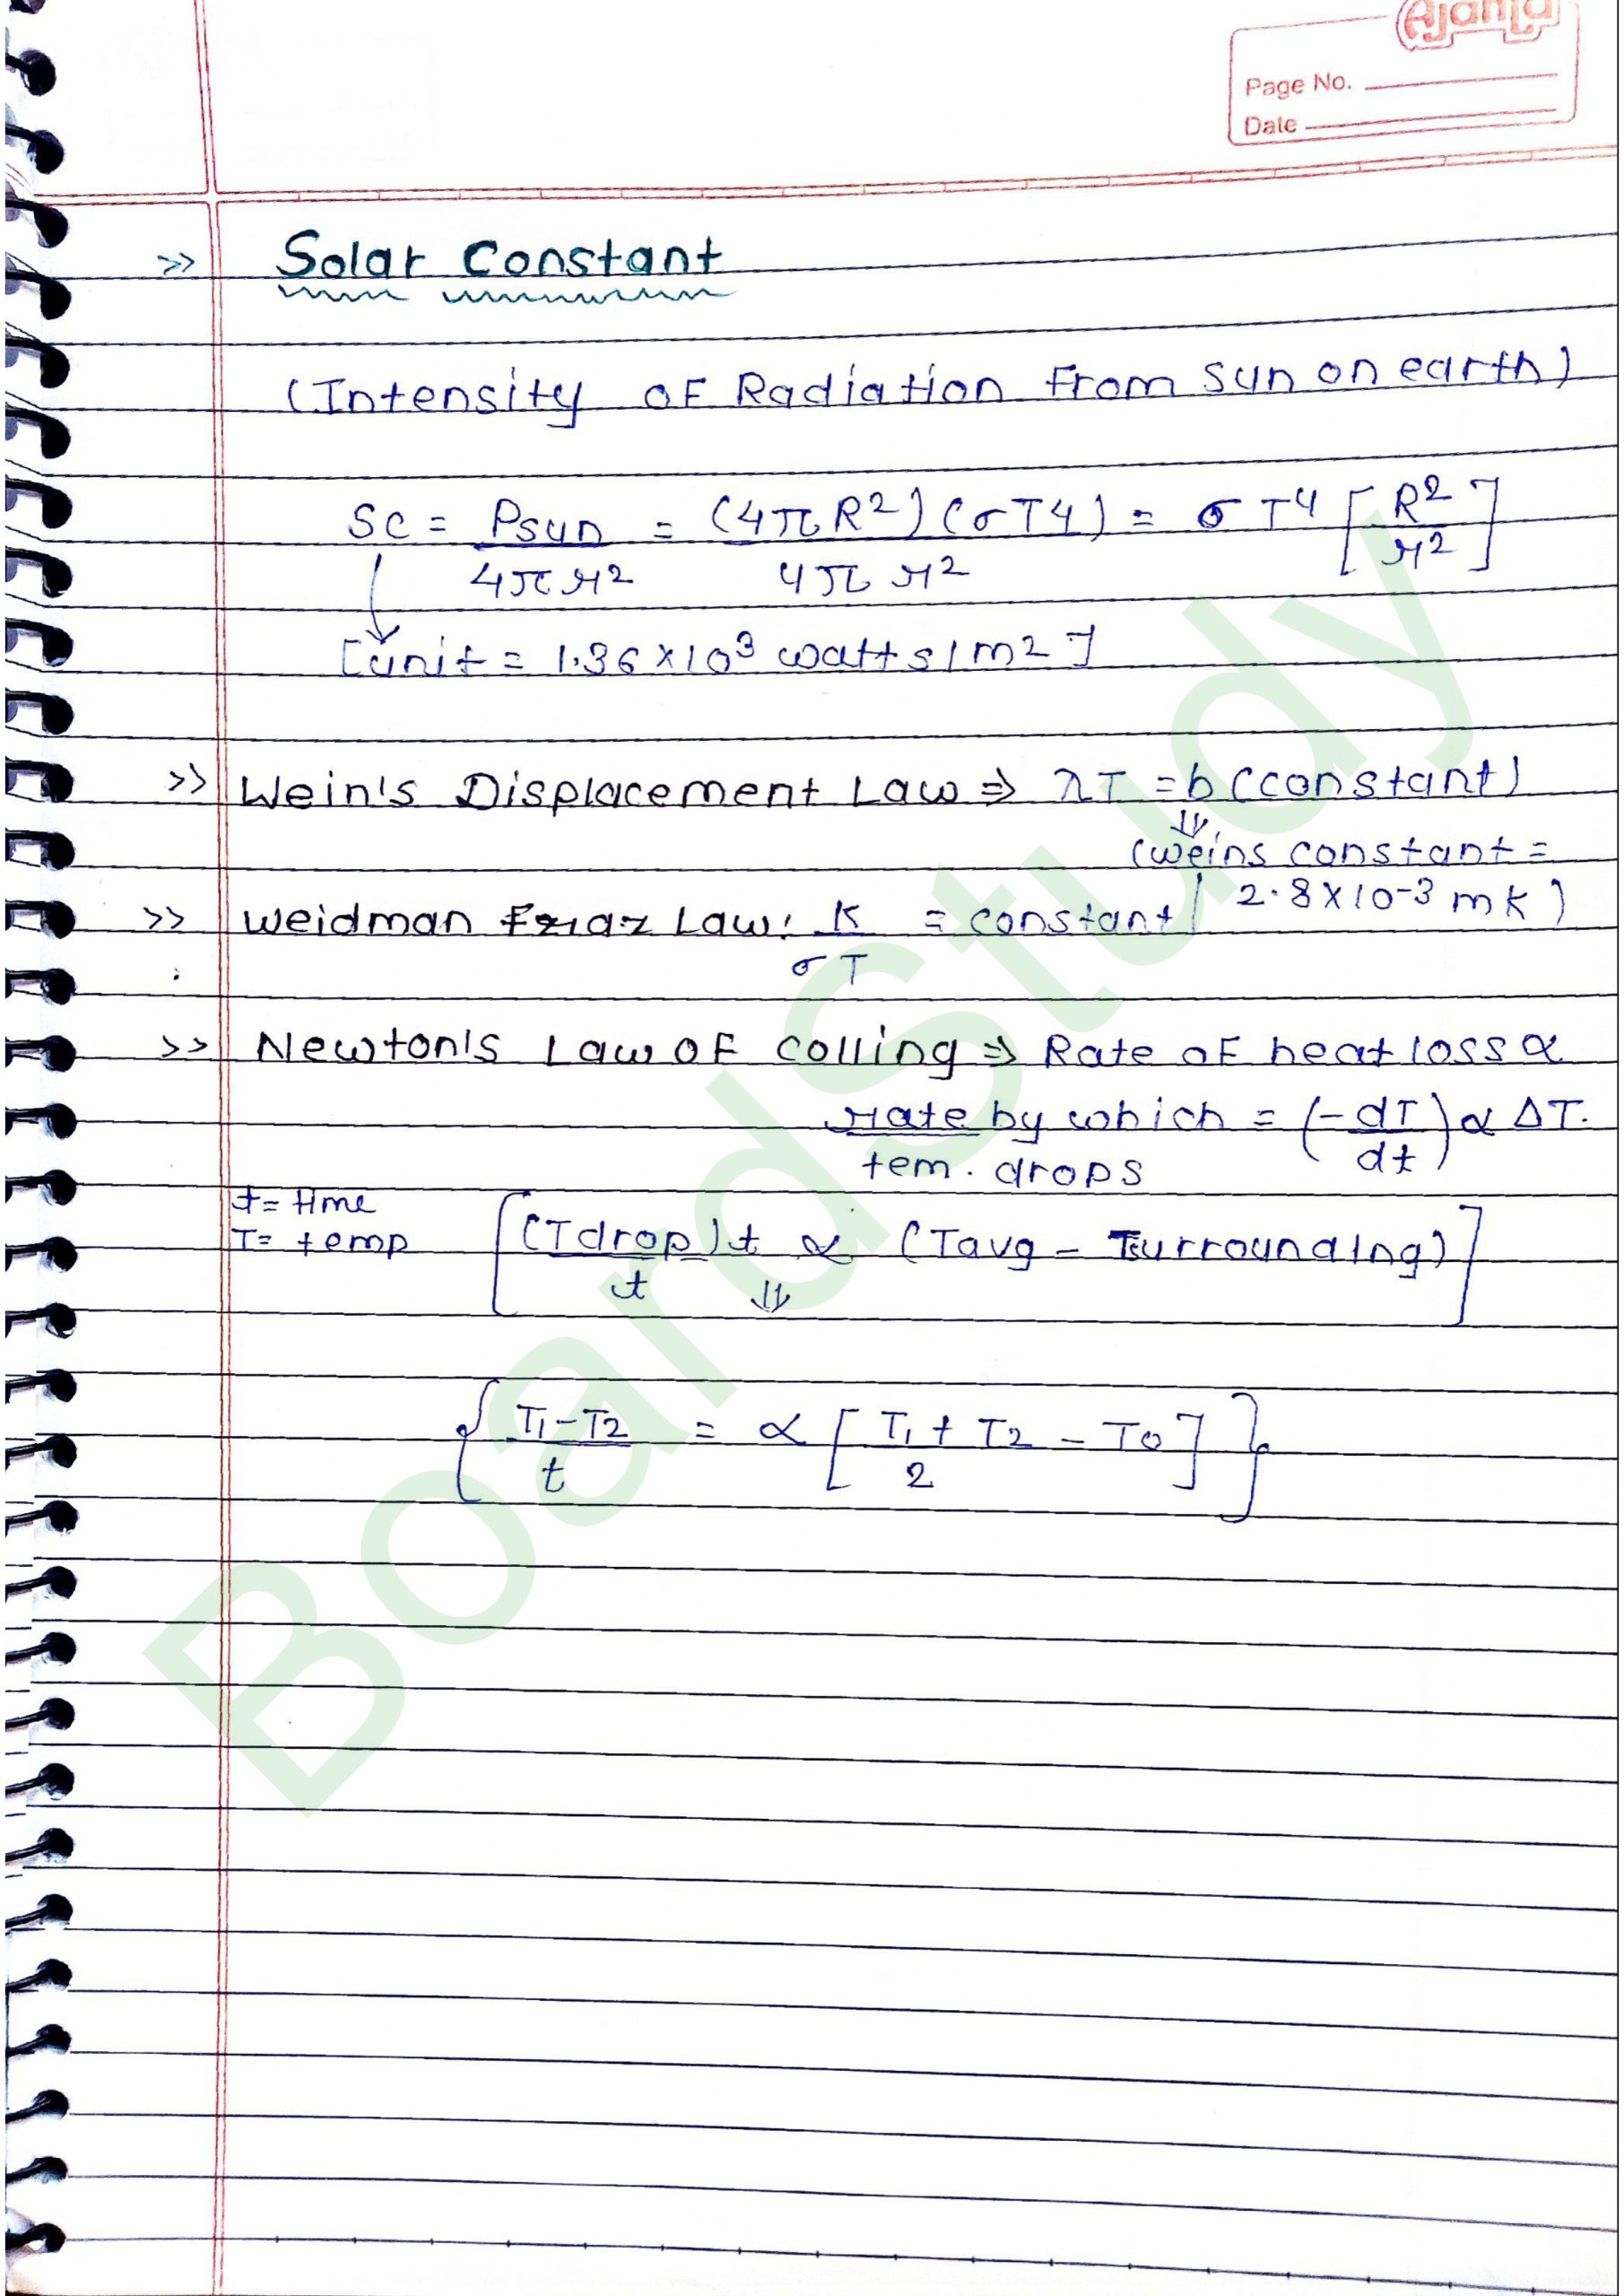 Ajanta
Page No.
Date
>> Solar Constant
(Intensity of Radiation From sun on earth)
SC = Psun / 4πr² = (4πR²)(σT4) / 4πr² = σT⁴ [R²/r²]
[unit = 1.36×10³ watts/m2]
>> Wein's Displacement Law ⇒ λT = b (constant)
⇓
(weins constant =
2.8×10-3 mk)
>> Weidman Franz Law: K / σT = constant
>> Newton's Law OF Colling ⇒ Rate OF heat loss ∝
rate by which = (-dT/dt) ∝ ΔT.
tem. drops
t = time
T = temp
[(Tdrop)t / t ∝ (Tavg - Tsurrounding)]
⇓
{T₁-T2 / t = ∝ [T₁ + T2 / 2 - T0]}
BoardStudy